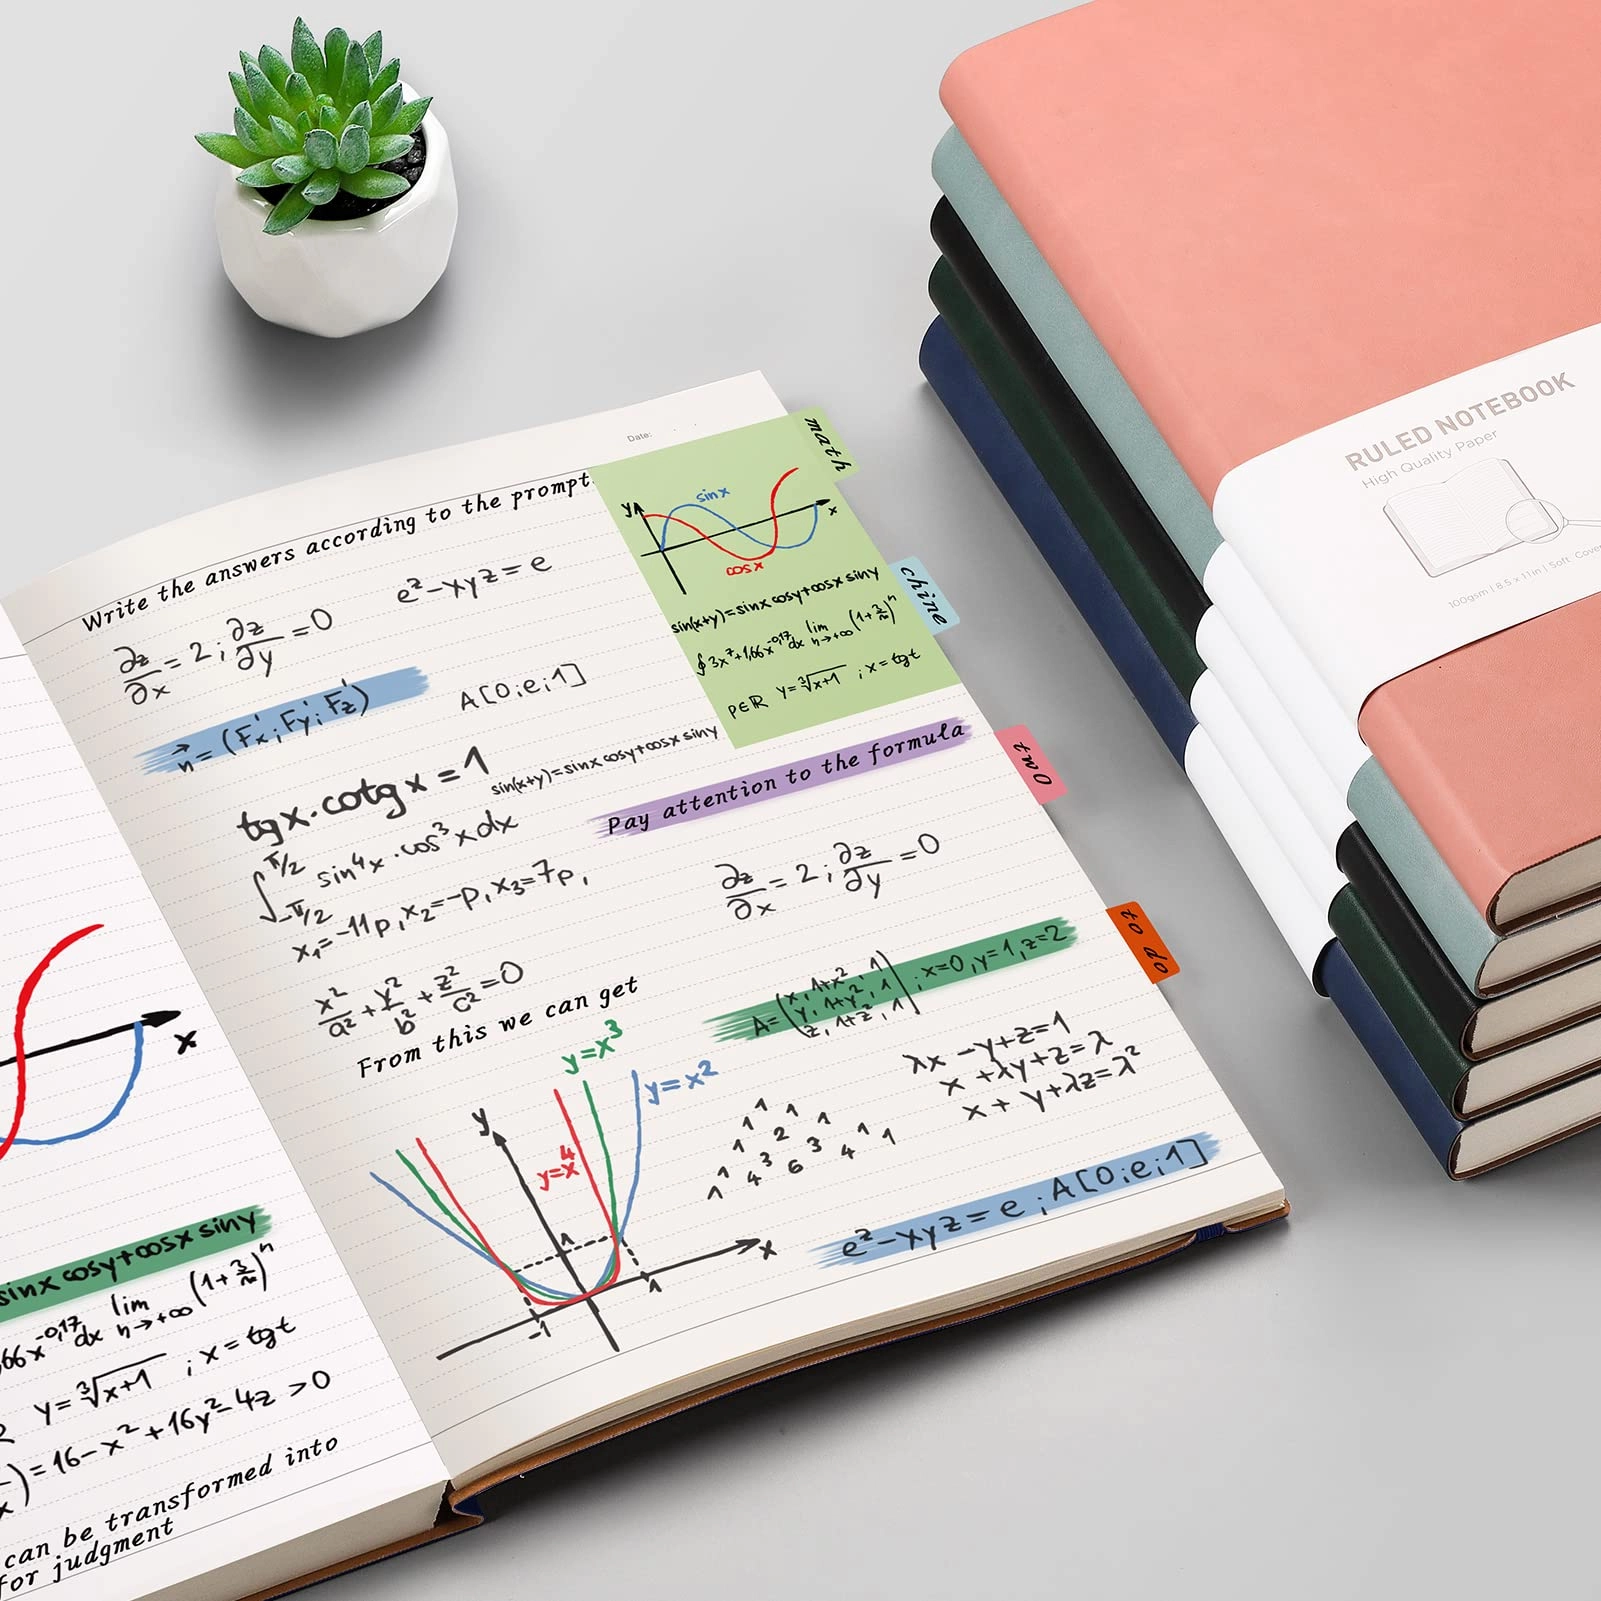 Date:
Write the answers according to the prompt.
∂z/∂x = 2 ; ∂z/∂y = 0
e^z - xyz = e
n⃗ = (F'x ; F'y ; F'z)
A[0;e;1]
tgx · cotgx = 1
sin(x+y)=sinx cosy+cosx siny
∫_{-π/2}^{π/2} sin⁴x · cos³x dx
x₁=-11p, x₂=-p, x₃=7p,
x²/a² + y²/b² + z²/c² = 0
From this we can get
y=x³
y=x²
y=x⁴
y
x
1
1
-1
math
y
sinx
x
cosx
sin(x+y)=sinx cosy+cosx siny
∮3x⁷+1,66x^{-0,17}dx lim n→+∞ (1+3/n)ⁿ
p∈ℝ y=∛x+1 ; x=tgt
chine
Pay attention to the formula
Omt
∂z/∂x = 2 ; ∂z/∂y = 0
op ot
A= (x, 1+x², 1
y, 1+y², 1
z, 1+z², 1) ; x=0, y=1, z=2
λx - y + z = 1
x + λy + z = λ
x + y + λz = λ²
1
1 1
1 2 1
1 3 3 1
1 4 6 4 1
e^z - xyz = e ; A[0;e;1]
x
sinx cosy+cosx siny
66x^{-0,17}dx lim n→+∞ (1+3/n)ⁿ
y=∛x+1 ; x=tgt
)=16-x²+16y²-4z >0
can be transformed into
for judgment
RULED NOTEBOOK
High Quality Paper
100gsm | 8.5 x 11in | Soft Cover